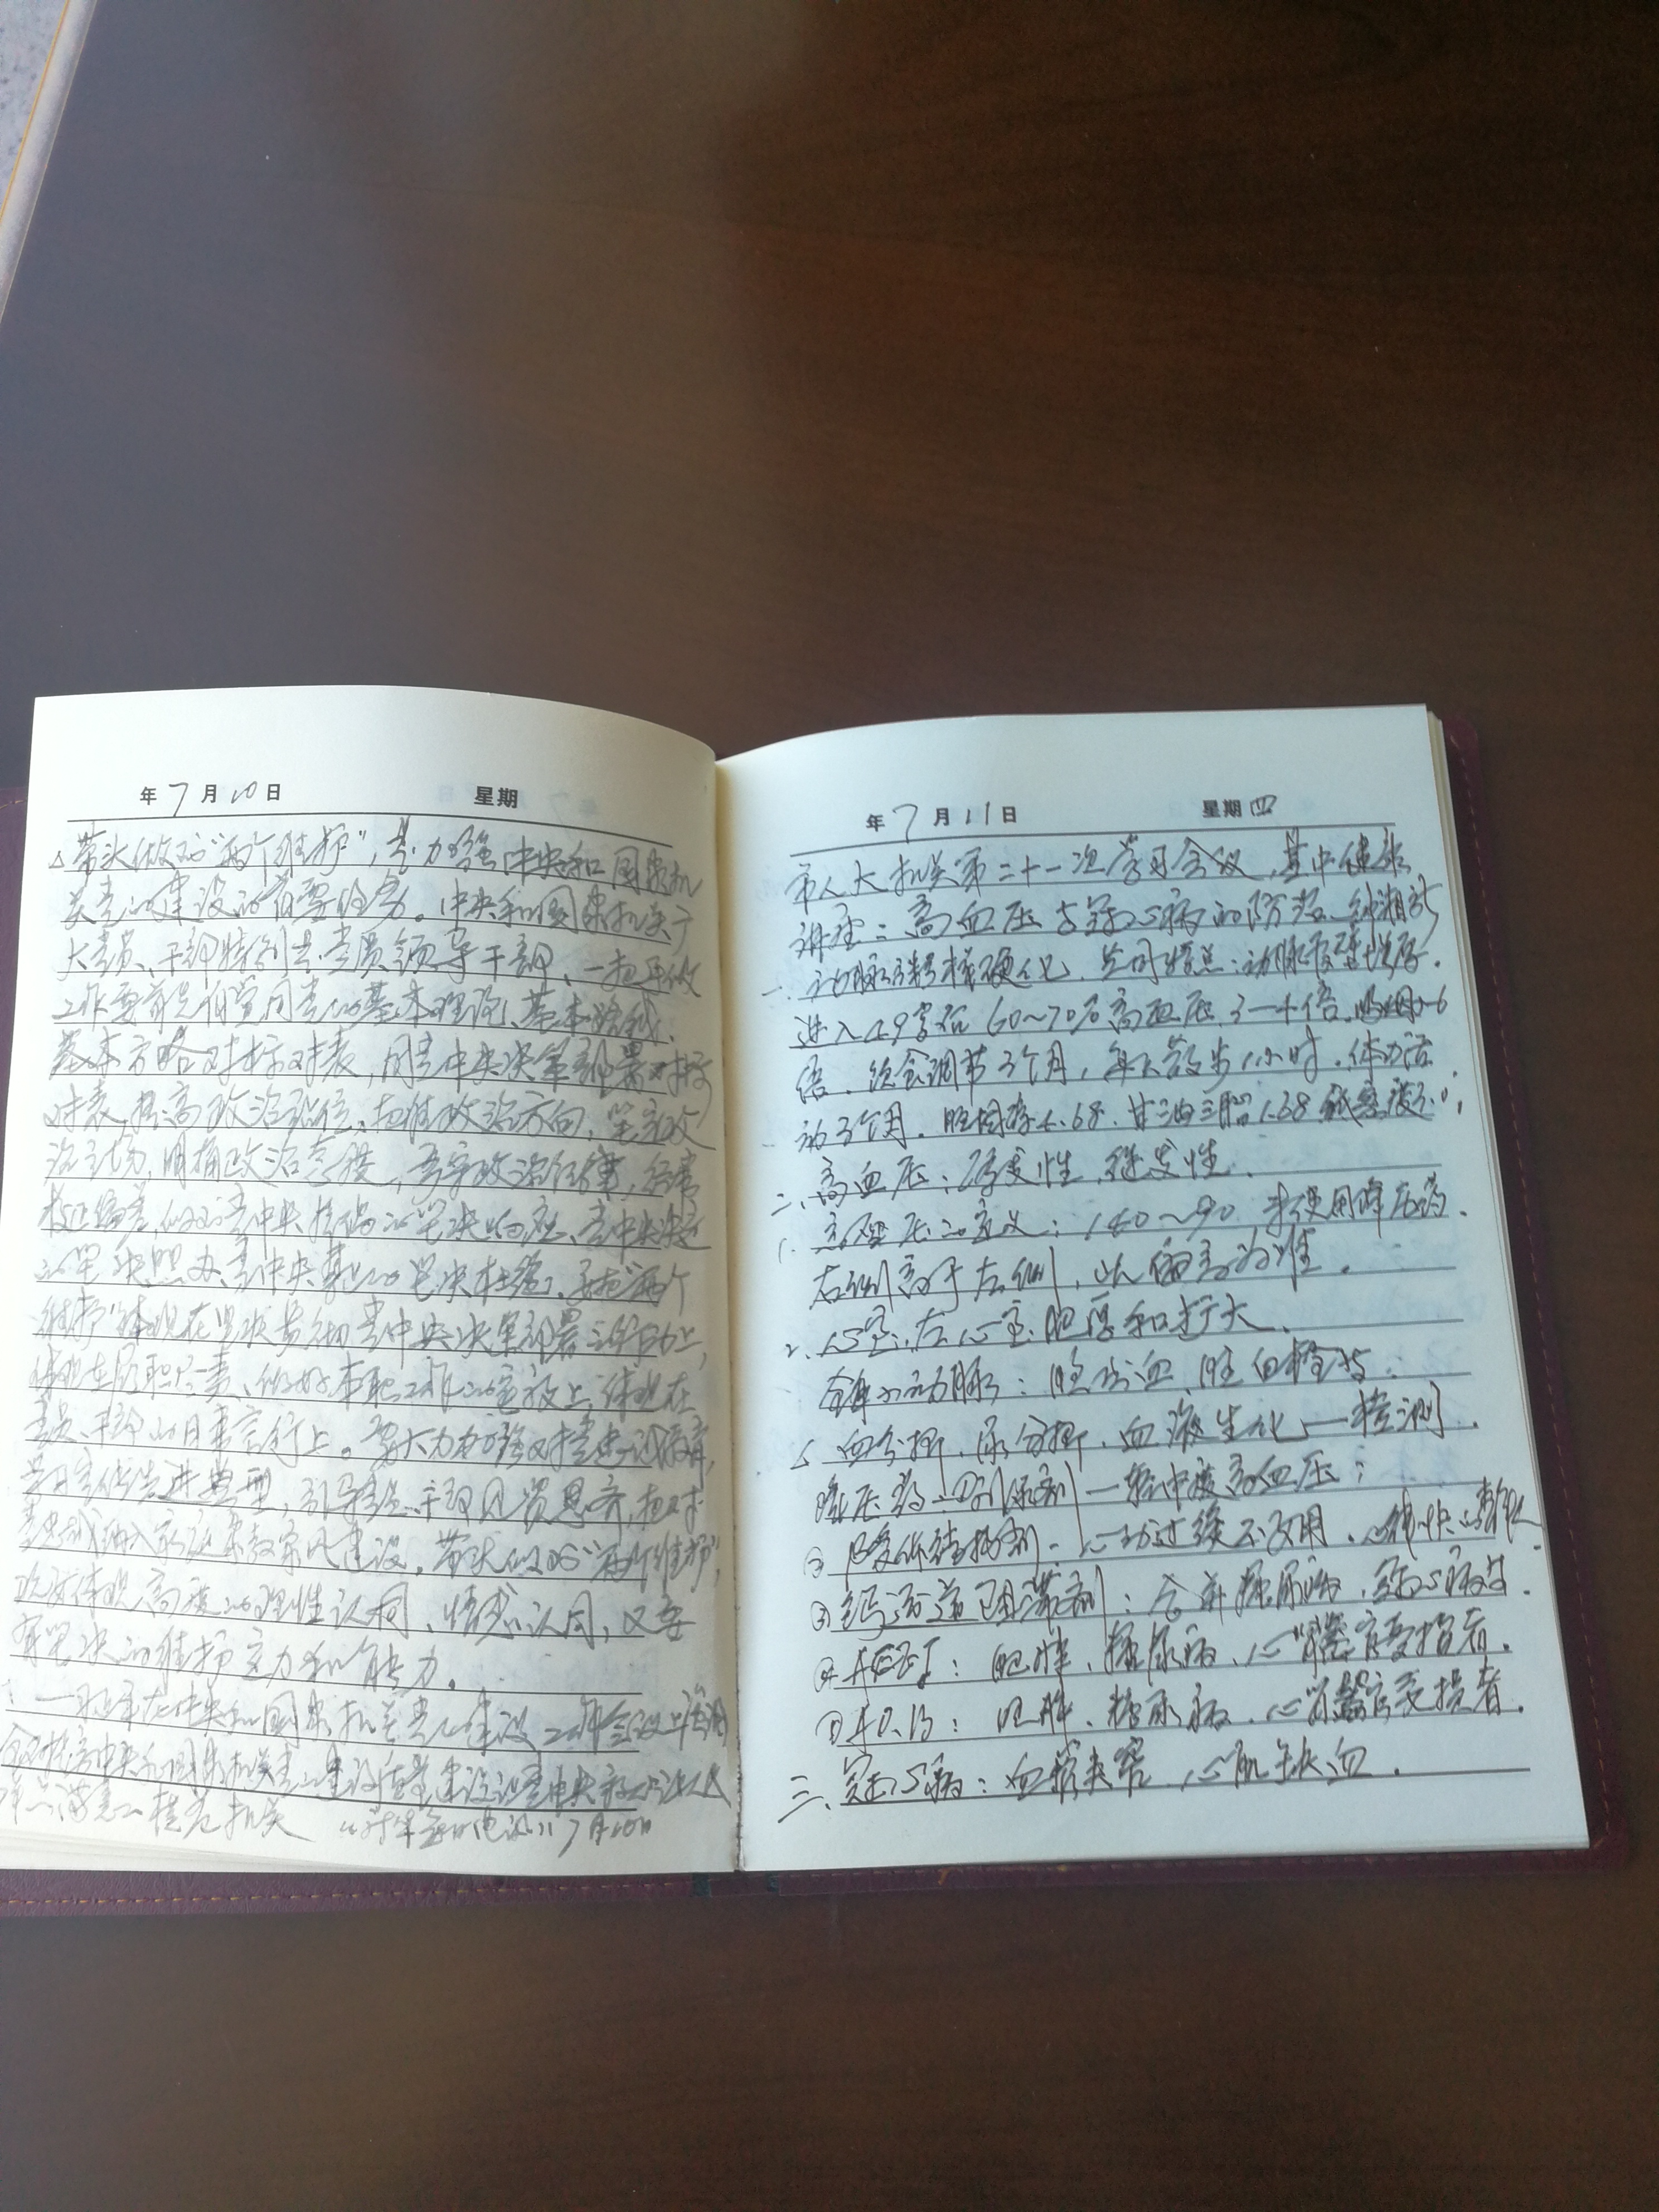 年7月10日 星期
带头做到“两个维护”，是加强中央和国家机
关党的建设的首要任务。中央和国家机关广
大党员、干部特别是党员领导干部、一把手做
工作要首先自觉同党的基本理论、基本路线、
基本方略对标对表，同党中央决策部署对标
对表，提高政治站位，把准政治方向，坚定政
治立场，明确政治态度，严守政治纪律，经常
校正偏差，做到党中央提倡的坚决响应、党中央决定
的坚决照办、党中央禁止的坚决杜绝。要把“两个
维护”体现在坚决贯彻党中央决策部署的行动上，
体现在履职尽责、做好本职工作的实效上，体现在
党员、干部的日常言行上。要大力加强对忠诚教育，
先进典型，引导党员、干部见贤思齐，把对
党忠诚纳入家庭家教家风建设。带头做到“两个维护”，
既要体现高度的理性认同、情感认同，又要
有坚决的维护定力和能力。
在中央和国家机关党的建设工作会议上强调
全面提高中央和国家机关党的建设质量建设让党中央放心让人民
群众满意的模范机关 7月10日
年7月11日 星期四
市人大机关第二十一次学习会议，其中健康
讲座：高血压与冠心病的防治
一、动脉粥样硬化，共同特点：动脉管壁增厚。
进入49岁后 60～70%高血压 3—4倍 吸烟2-6
倍。饮食调节3个月，每天散步1小时，体力活
动3个月。胆固醇4.68 甘油三脂1.38
二、高血压：原发性、继发性
1、高血压的定义：140～90，未使用降压药、
右侧高于左侧，以偏高为准。
2、心室：左心室肥厚和扩大、
脑出血、
血分析、尿分析、血液生化一检测。
降压药：①利尿剂一轻中度高血压；
② β受体阻抗剂
③ 钙通道阻滞剂：合并糖尿病、冠心病者。
④ 肥胖、糖尿病、心肾脏器官受损者。
肥胖、糖尿病、心肾器官受损者。
三、冠心病：血管狭窄、心肌缺血。